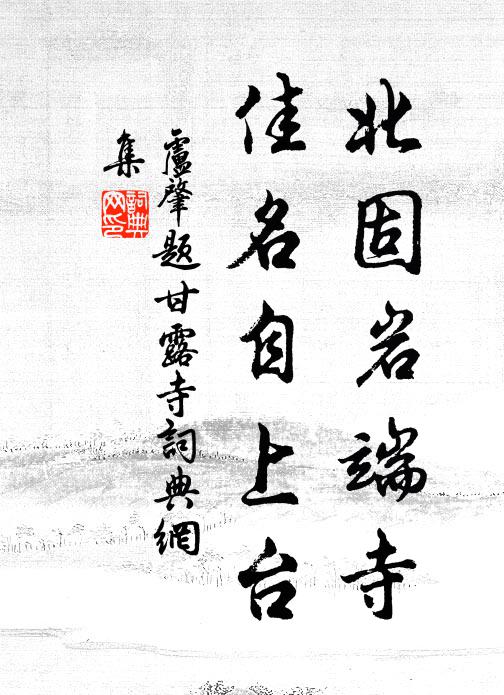 北固岩端寺
佳名自上台
盧肇題甘露寺詞典網
集
詞典
网印